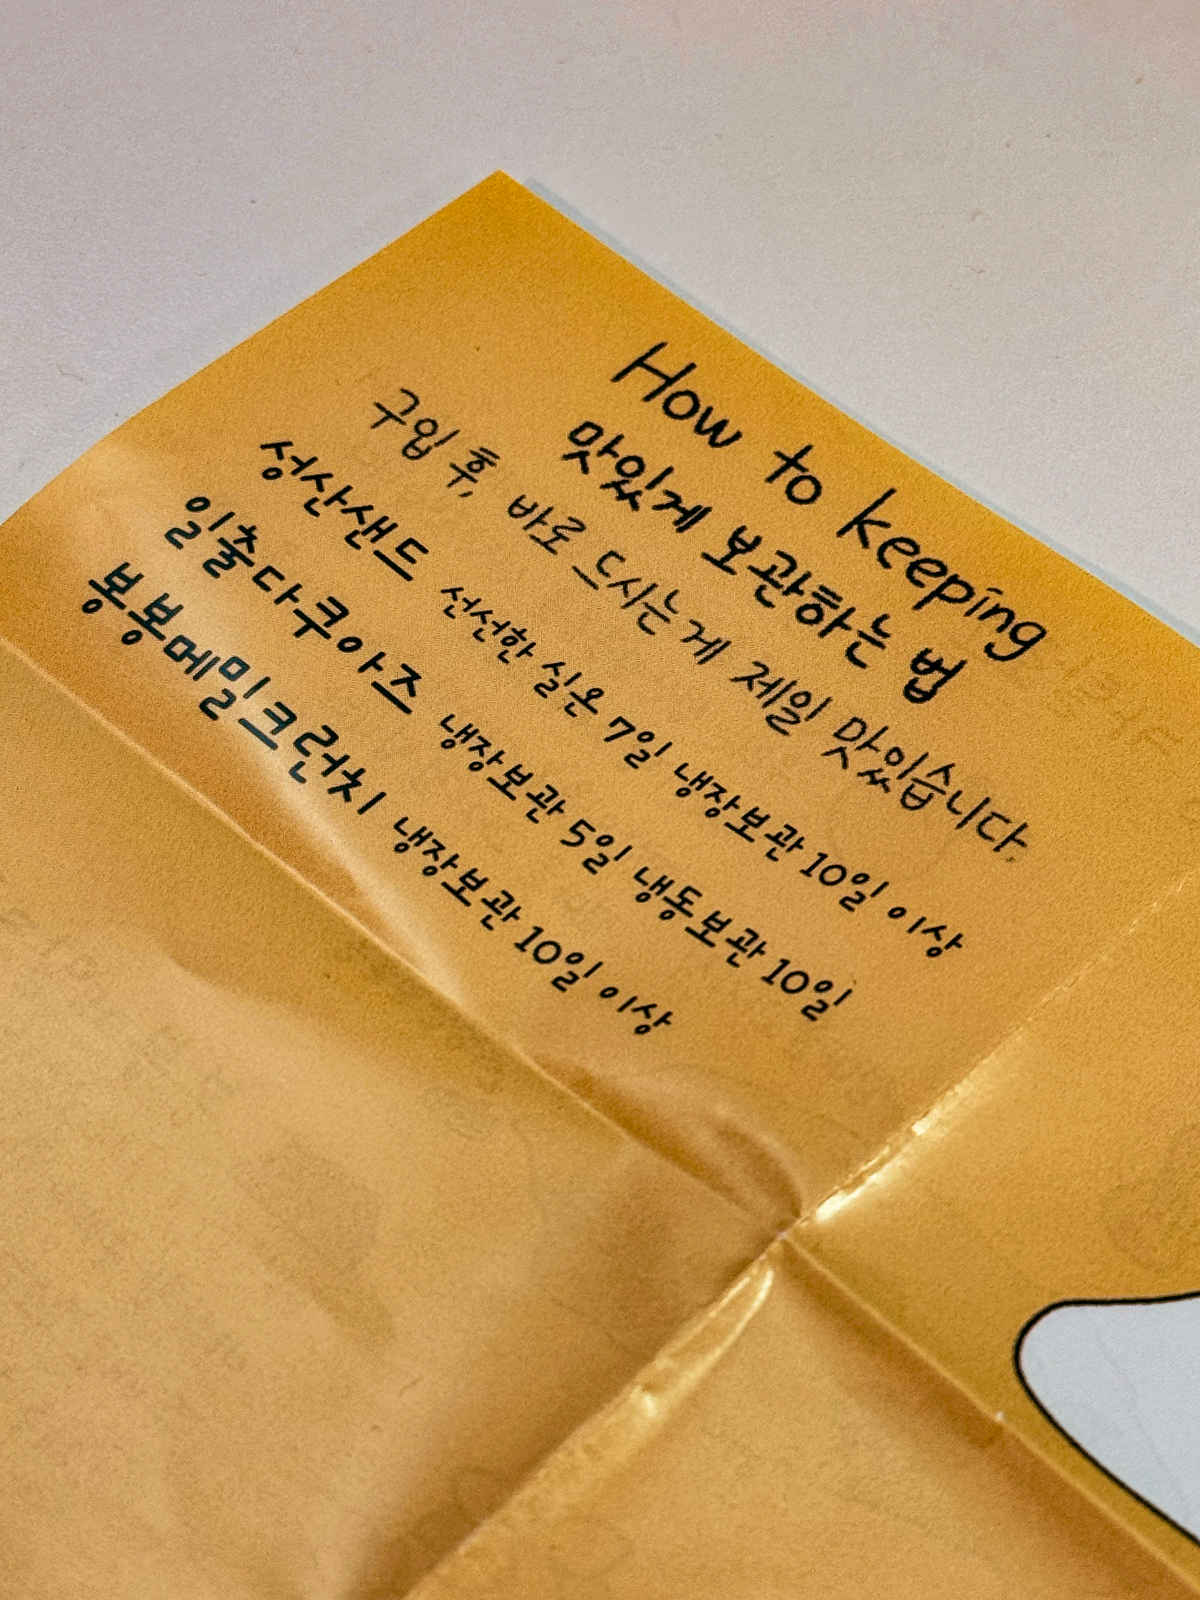 How to keeping
맛있게 보관하는 법
구입 후, 바로 드시는게 제일 맛있습니다.
성산샌드 선선한 실온 7일 냉장보관 10일 이상
일출다쿠아즈 냉장보관 5일 냉동보관 10일
봉봉메밀크런치 냉장보관 10일 이상